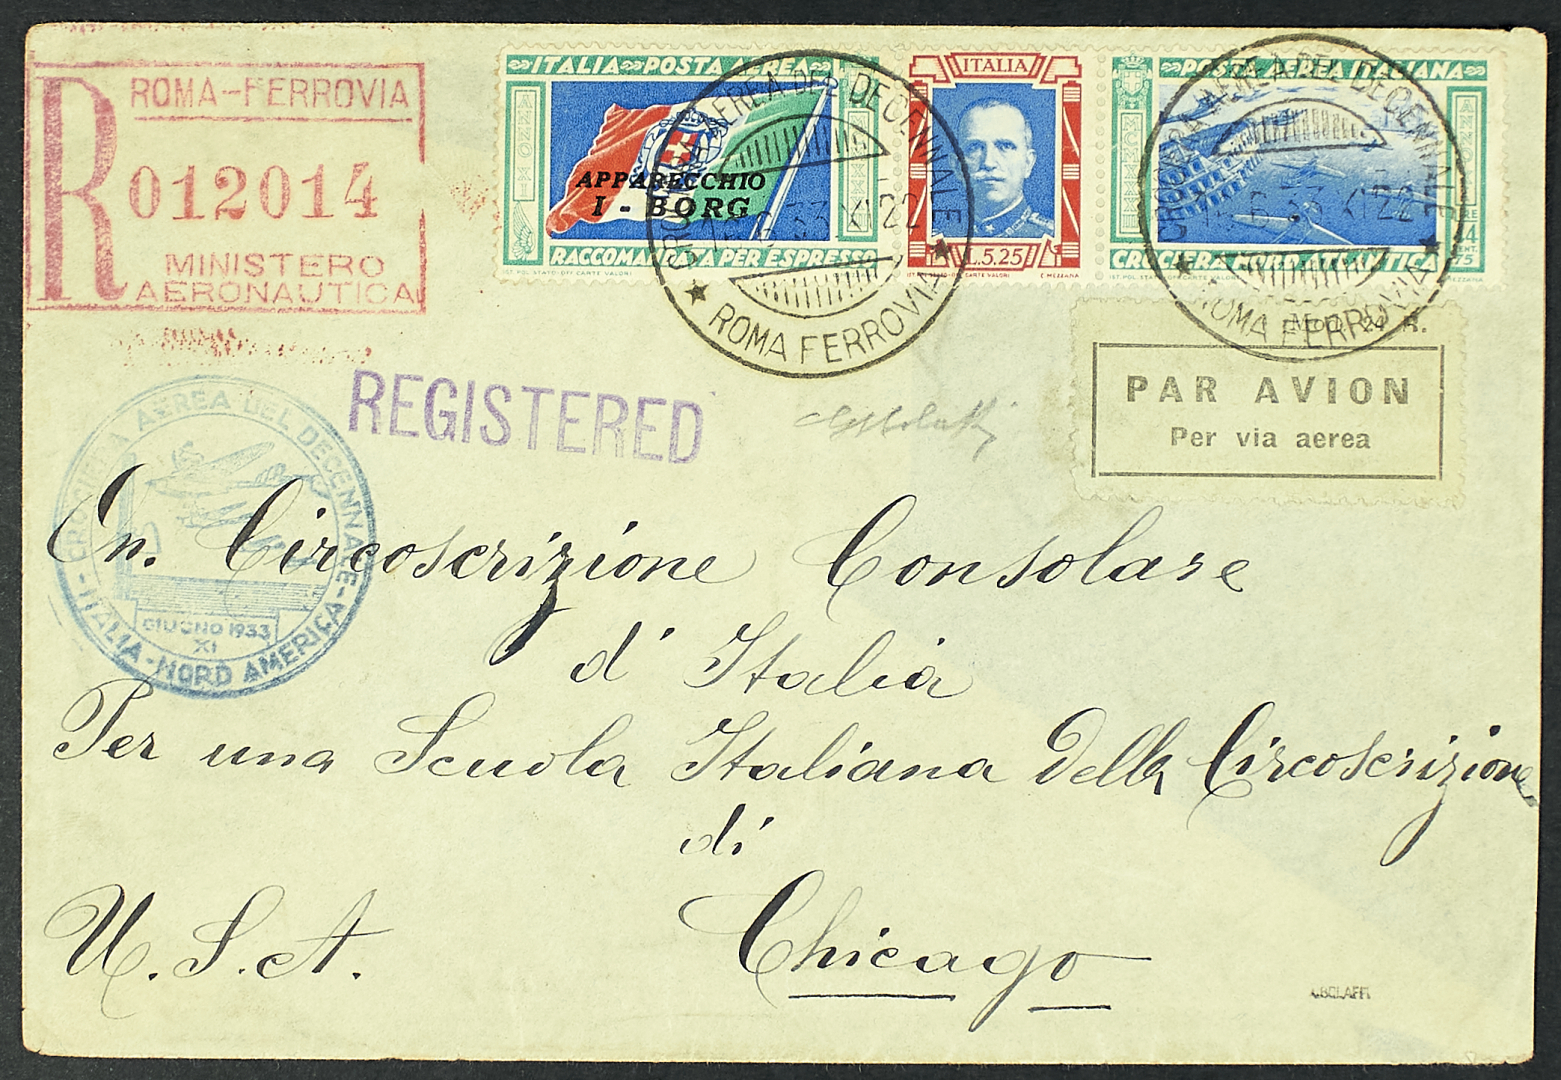 R
ROMA-FERROVIA
012014
MINISTERO
AERONAUTICA
ITALIA POSTA AEREA
ANNO XI
APPARECCHIO
I - BORG
RACCOMANDATA PER ESPRESSO
IST. POL. STATO-OFF. CARTE VALORI
ITALIA
L.5.25
IST. POL. STATO-OFF. CARTE VALORI C. MEZZANA
POSTA AEREA ITALIANA
CROCIERA NORD ATLANTICA
LIRE 44 CENT. 75
CROCIERA AEREA DEL DECENNALE
15.6.33.XI 22
★ ROMA FERROVIA ★
CROCIERA AEREA DEL DECENNALE
15.6.33.XI 22
★ ROMA FERROVIA ★
Mod. 24 R.
PAR AVION
Per via aerea
REGISTERED
CROCIERA AEREA DEL DECENNALE
GIUGNO 1933
XI
- ITALIA - NORD AMERICA -
On. Circoscrizione Consolare
d' Italia
Per una Scuola Italiana della Circoscrizione
di
U.S.A. Chicago
A.BOLAFFI